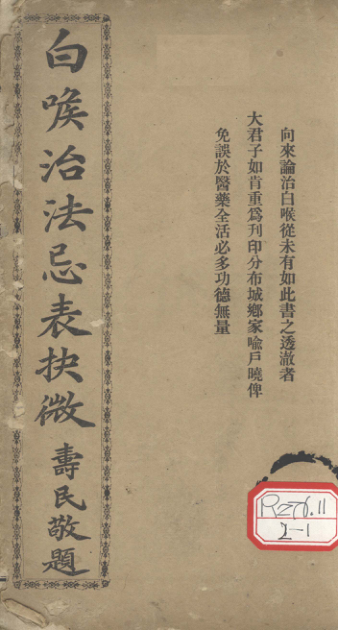 向來論治白喉從未有如此書之透澈者
大君子如肯重爲刊印分布城鄉家喩戶曉俾
免誤於醫藥全活必多功德無量
白喉治法忌表抉微
壽民敬題
R276.11
2-1